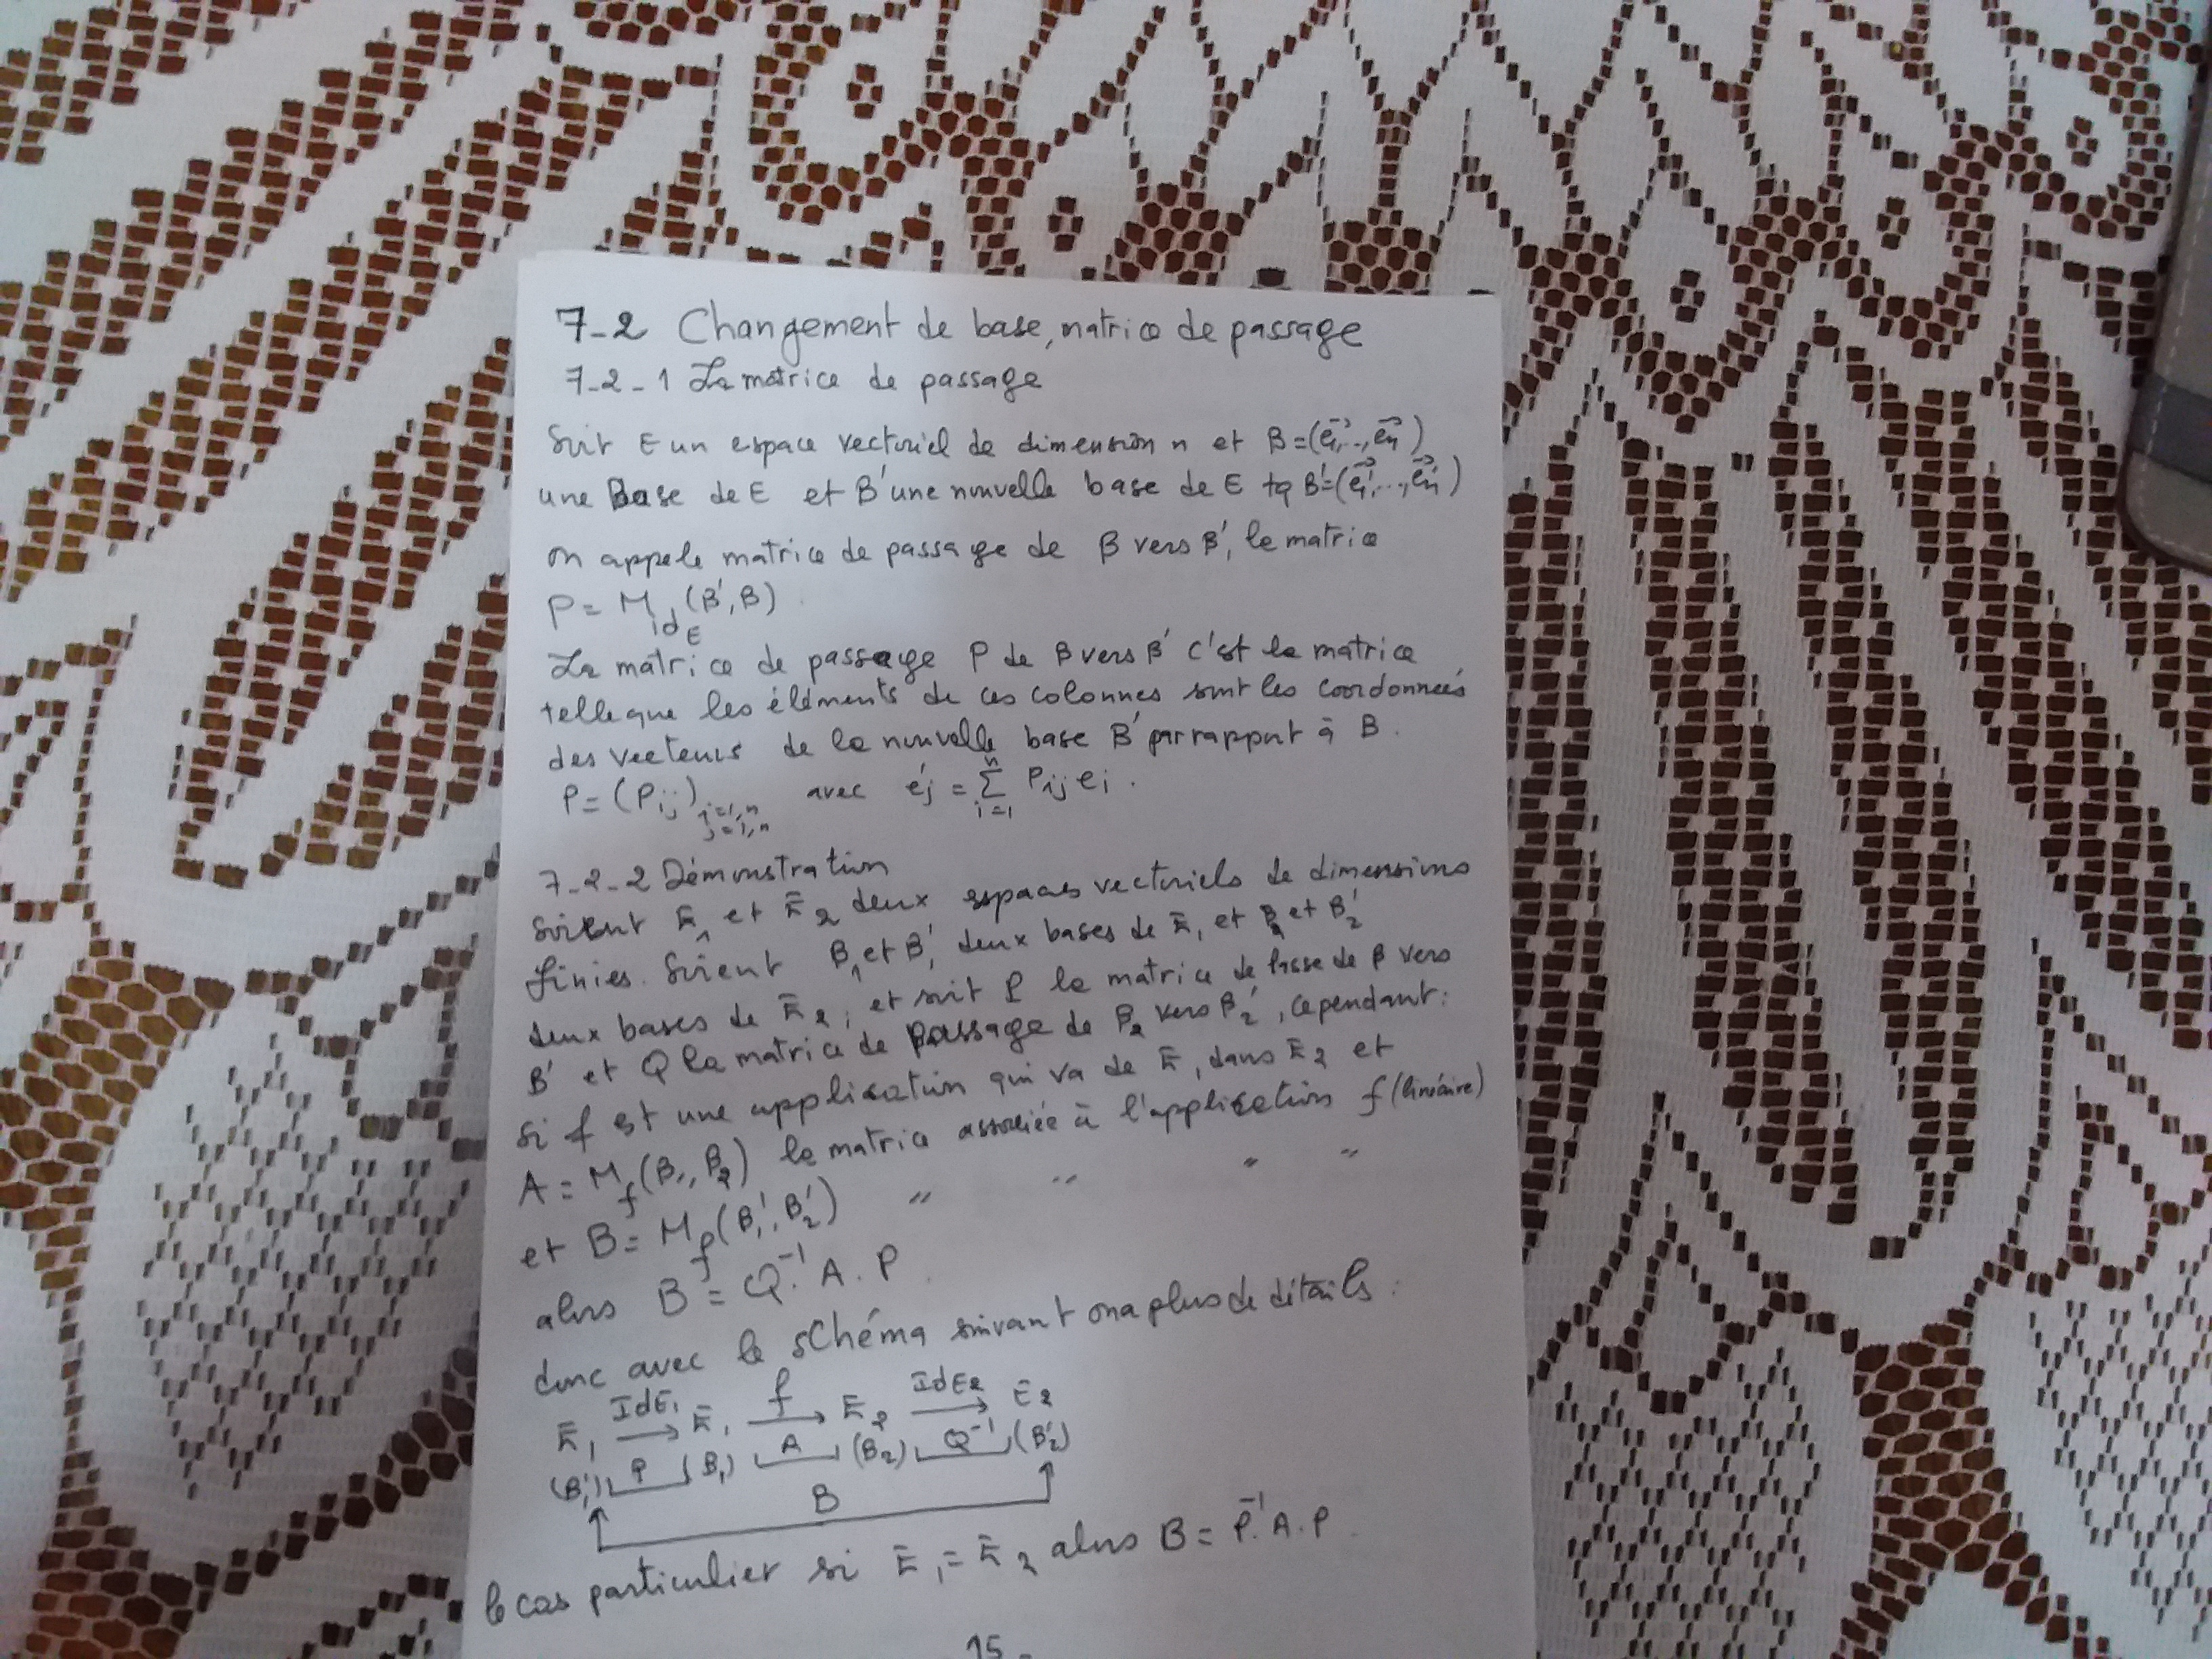 7-2 Changement de base, matrice de passage
7-2-1 La matrice de passage
Soit E un espace vectoriel de dimension n et B=(e₁,..,eₙ)
une Base de E et B' une nouvelle base de E tq B'=(e'₁,...,e'ₙ)
on appele matrice de passage de B vers B', la matrice
P = M_{id_E}(B',B)
La matrice de passage P de B vers B' c'est la matrice
telle que les éléments de ces colonnes sont les coordonnées
des vecteurs de la nouvelle base B' par rapport à B.
P = (Pᵢⱼ) i=1,n j=1,n avec e'j = Σ_{i=1}^{n} Pij ei.
7-2-2 Démonstration
Soient E₁ et E₂ deux espaces vectoriels de dimensions
finies. Soient B₁ et B'₁ deux bases de E₁ et B₂ et B'₂
deux bases de E₂, et soit P la matrice de de B vers
B' et Q la matrice de passage de B₂ vers B'₂, cependant:
Si f est une application qui va de E₁ dans E₂ et
A = M_f(B₁,B₂) la matrice associée à l'application f (linéaire)
et B = M_f(B'₁,B'₂) " " " "
alors B = Q⁻¹.A.P.
donc avec le schéma suivant on a plus de détails:
IdE₁ f IdE₂
E₁ → E₁ → E₂ → E₂
(B'₁) P (B₁) A (B₂) Q⁻¹ (B'₂)
B
le cas particulier si E₁ = E₂ alors B = P⁻¹.A.P.
15-